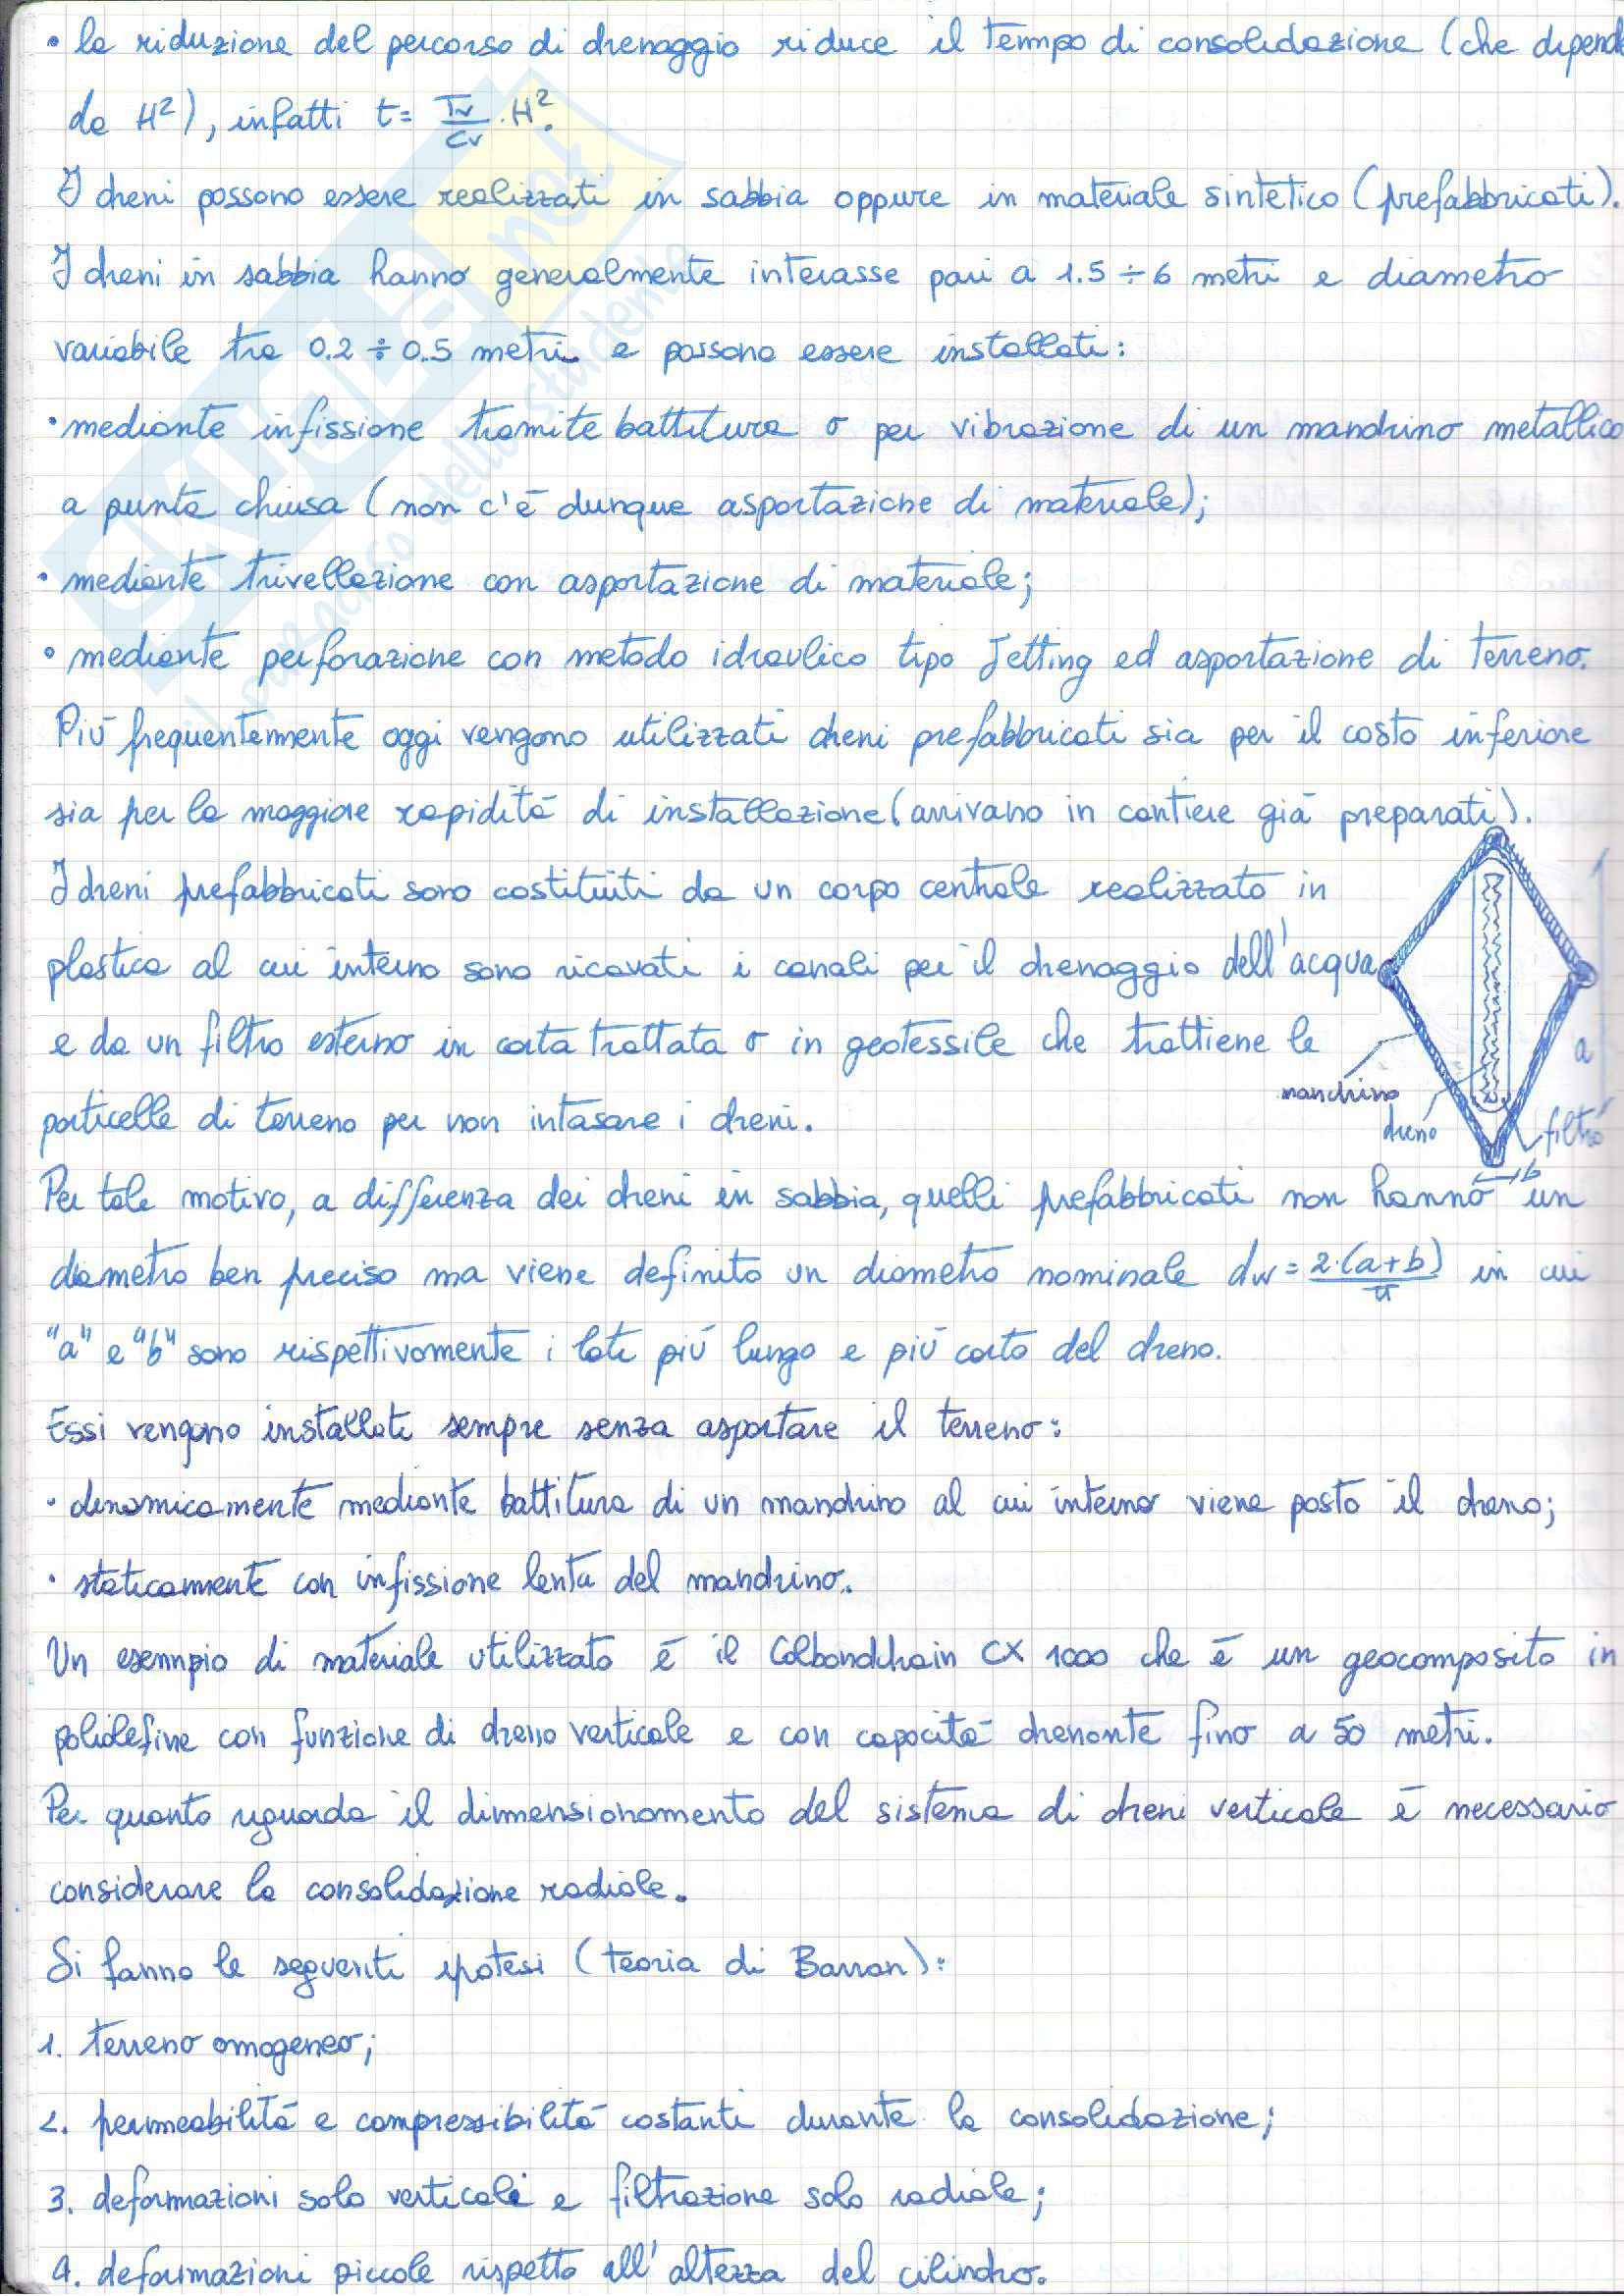 • la riduzione del percorso di drenaggio riduce il tempo di consolidazione (che dipende
da H²), infatti t = Tv/Cv · H².
I dreni possono essere realizzati in sabbia oppure in materiale sintetico (prefabbricati).
I dreni in sabbia hanno generalmente interasse pari a 1.5 ÷ 6 metri e diametro
variabile tra 0.2 ÷ 0.5 metri e possono essere installati:
• mediante infissione tramite battitura o per vibrazione di un mandrino metallico
a punta chiusa (non c'è dunque asportazione di materiale);
• mediante trivellazione con asportazione di materiale;
• mediante perforazione con metodo idraulico tipo Jetting ed asportazione di terreno.
Più frequentemente oggi vengono utilizzati dreni prefabbricati sia per il costo inferiore
sia per la maggiore rapidità di installazione (arrivano in cantiere già preparati).
I dreni prefabbricati sono costituiti da un corpo centrale realizzato in
plastica al cui interno sono ricavati i canali per il drenaggio dell'acqua
e da un filtro esterno in carta trattata o in geotessile che trattiene le
particelle di terreno per non intasare i dreni.
a
mandrino
dreno
filtro
b
Per tale motivo, a differenza dei dreni in sabbia, quelli prefabbricati non hanno un
diametro ben preciso ma viene definito un diametro nominale dw = 2·(a+b)/π in cui
"a" e "b" sono rispettivamente i lati più lungo e più corto del dreno.
Essi vengono installati sempre senza asportare il terreno:
• dinamicamente mediante battitura di un mandrino al cui interno viene posto il dreno;
• staticamente con infissione lenta del mandrino.
Un esempio di materiale utilizzato è il Colbonddrain CX 1000 che è un geocomposito in
poliolefine con funzione di dreno verticale e con capacità drenante fino a 50 metri.
Per quanto riguarda il dimensionamento del sistema di dreni verticale è necessario
considerare la consolidazione radiale.
Si fanno le seguenti ipotesi (teoria di Barron):
1. terreno omogeneo;
2. permeabilità e compressibilità costanti durante la consolidazione;
3. deformazioni solo verticali e filtrazione solo radiale;
4. deformazioni piccole rispetto all'altezza del cilindro.
SKUOLA.net
il paradiso dello studente